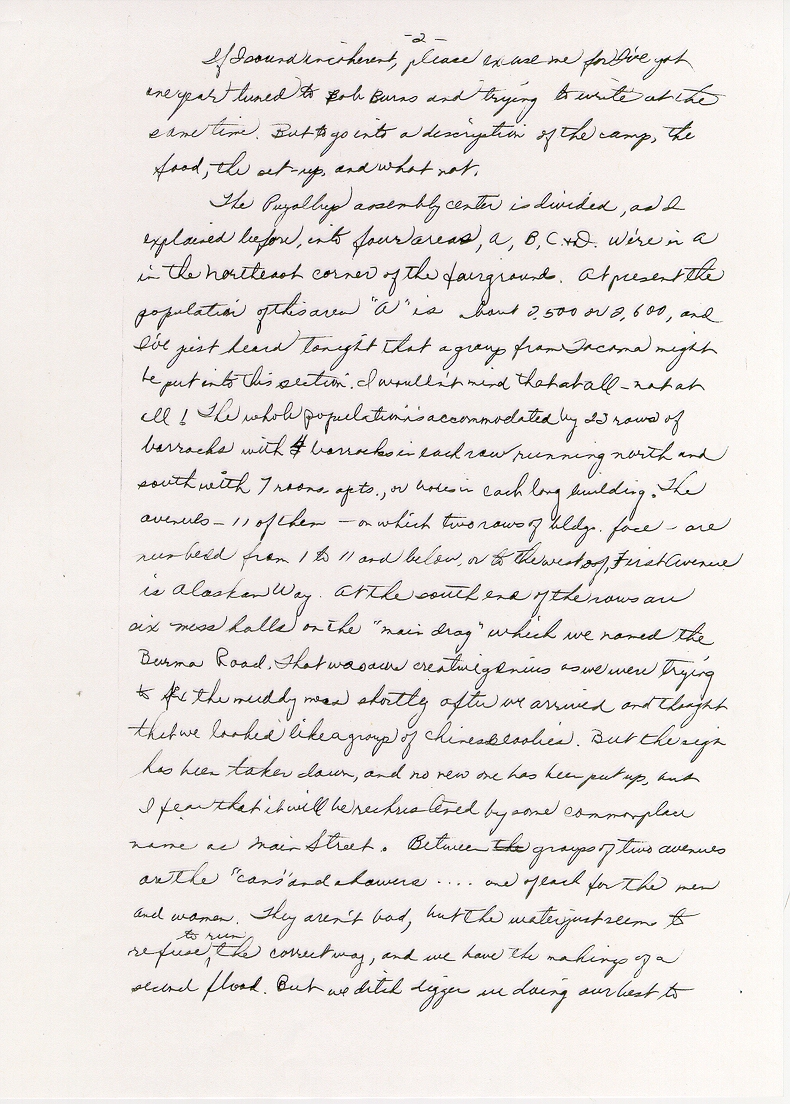 -2-
If I sound incoherent, please excuse me for I've got
one year tuned to Bob Burns and trying to write at the
same time. But to go into a discription of the camp, the
food, the set-up, and what not.
The Puyallup assembly center is divided, as I
explained before, into four areas, A, B, C & D. We're in A
in the northeast corner of the fairgrounds. At present the
population of this area "A" is about 2,500 or 2,600, and
I've just heard tonight that a group from Tacoma might
be put into this section. I wouldn't mind that at all - not at
all! The whole population is accommodated by 23 rows of
barracks with 4 barracks in each row running north and
south with 7 rooms, apts., or in each long building. The
avenues - 11 of them - on which two rows of bldgs. face - are
numbered from 1 to 11 and below, or to the west of, First Avenue
is Alaskan Way. At the south end of the rows are
six mess halls on the "main drag" which we named the
Burma Road. That was our creative genius as we were trying
to fix the muddy mess shortly after we arrived and thought
that we looked like a group of Chinese coolies. But the sign
has been taken down, and no new one has been put up, and
I fear that it will be rechristened by some commonplace
name as Main Street. Between the groups of two avenues
are the "cans" and showers .... one of each for the men
and women. They aren't bad, but the water just seems to
refuse to run the correct way, and we have the makings of a
second flood. But we ditch digger are doing our best to